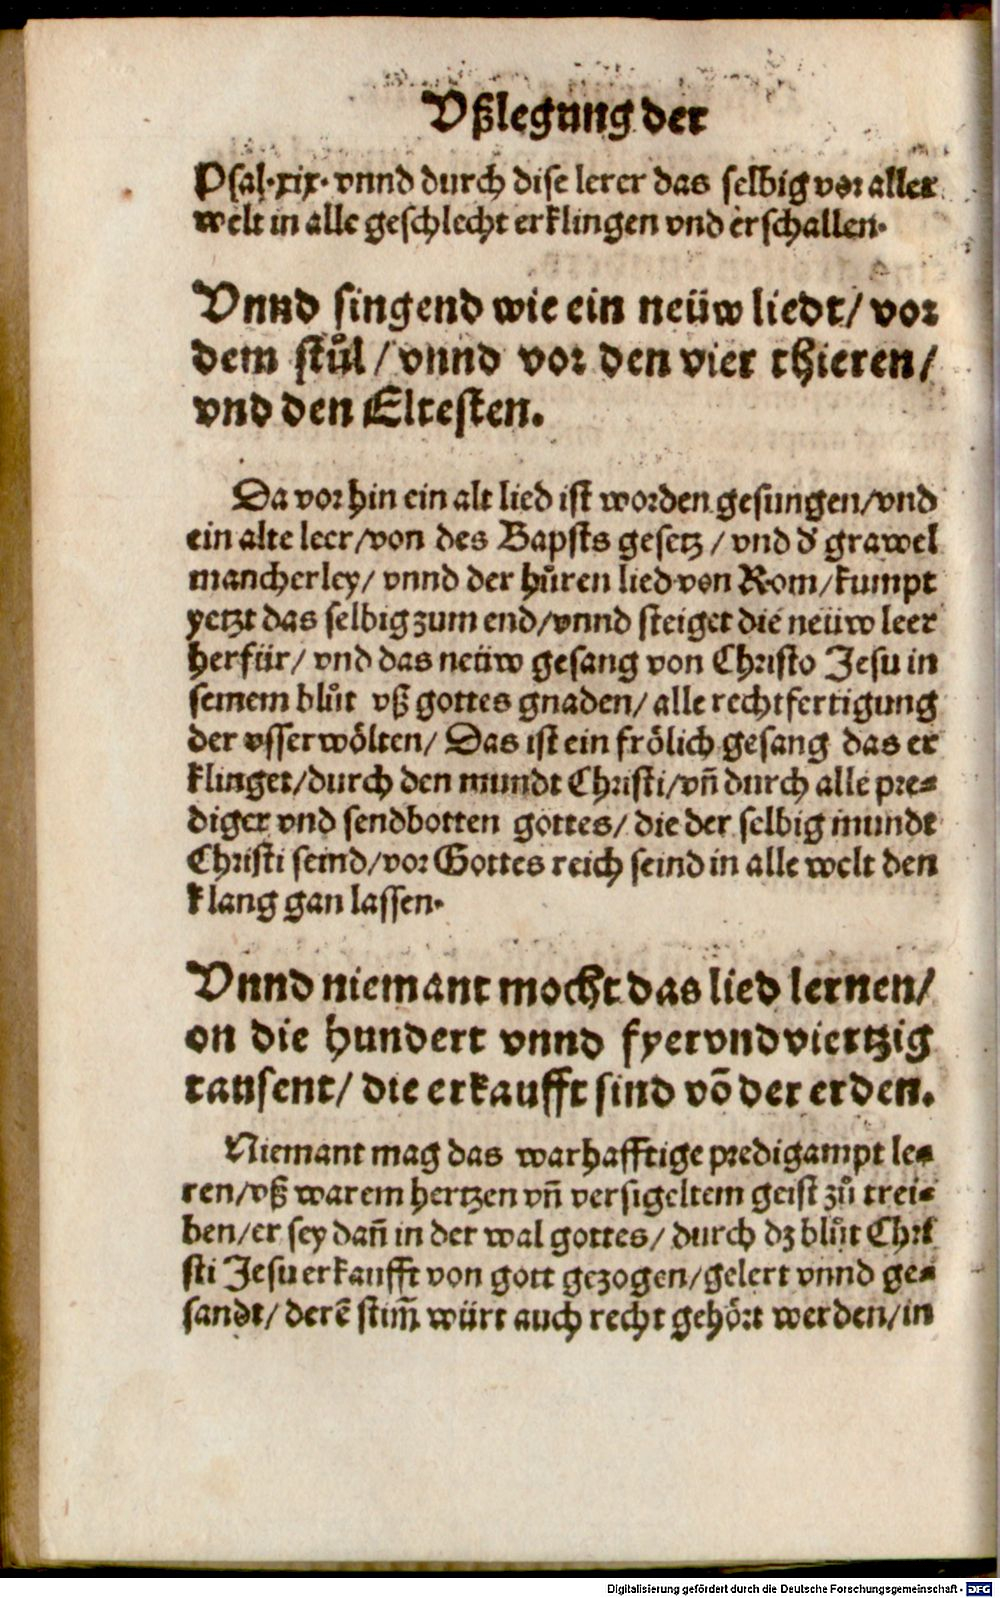 Vßlegung der
Psal·xix· vnnd durch dise lerer das selbig vor aller
welt in alle geschlecht erklingen vnd erschallen·
Vnnd singend wie ein neüw liedt/ vor
dem stůl / vnnd vor den vier thieren/
vnd den Eltesten.
Da vor hin ein alt lied ist worden gesungen/vnd
ein alte leer/von des Bapsts gesetz / vnd d' grawel
mancherley/ vnnd der hůren lied von Rom/kumpt
yetzt das selbig zum end/vnnd steiget die neüw leer
herfür/ vnd das neüw gesang von Christo Jesu in
seinem blůt vß gottes gnaden/ alle rechtfertigung
der vsserwölten/ Das ist ein frölich gesang das er
klinget/durch den mundt Christi/vn̄ durch alle pre⸗
diger vnd sendbotten gottes/ die der selbig mundt
Christi seind/vor Gottes reich seind in alle welt den
klang gan lassen·
Vnnd niemant mocht das lied lernen/
on die hundert vnnd fyervndviertzig
tausent/ die erkaufft sind vō der erden.
Niemant mag das warhafftige predigampt le⸗
ren/vß warem hertzen vn̄ versigeltem geist zů trei⸗
ben/er sey dan̄ in der wal gottes/ durch dz blůt Chri
sti Jesu erkaufft von gott gezogen/gelert vnnd ge⸗
sandt/ derē stim̄ würt auch recht gehört werden/in
Digitalisierung gefördert durch die Deutsche Forschungsgemeinschaft - DFG